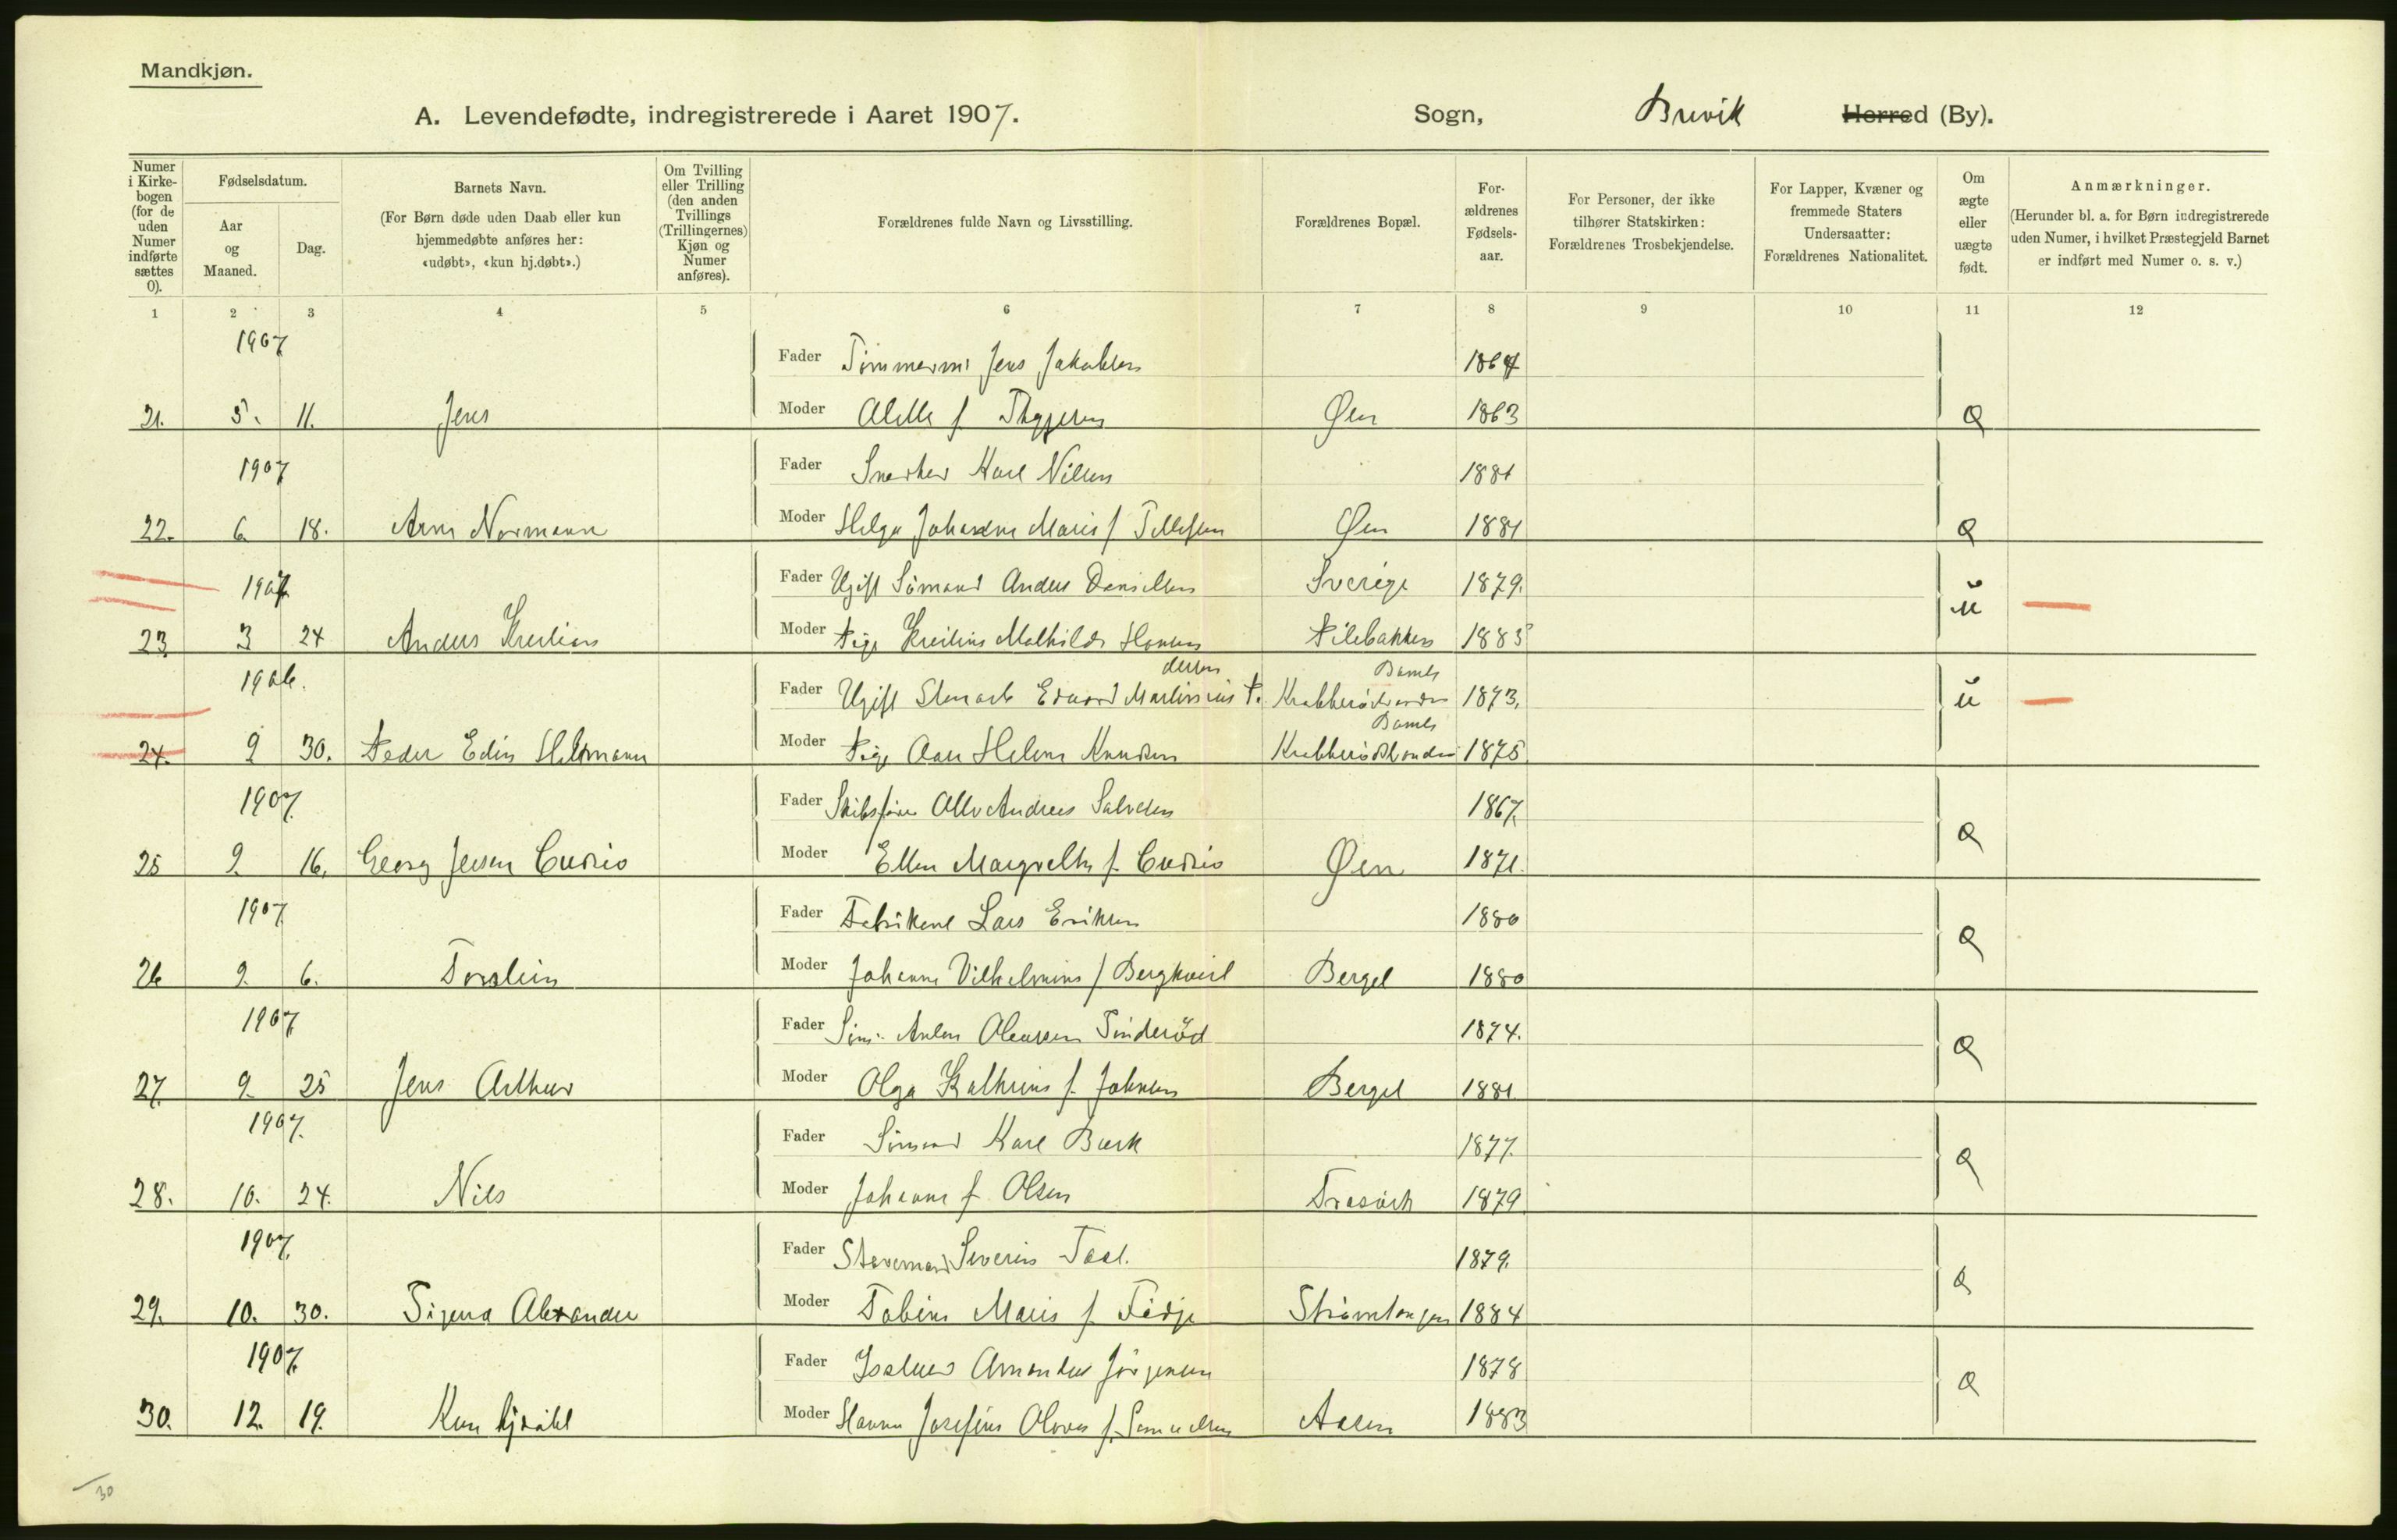 Mandkjøn.
A. Levendefødte, indregistrerede i Aaret 1907. Sogn, Brevik Herred (By).
Numer i Kirke-bogen (for de uden Numer indførte sættes 0).
Fødselsdatum.
Aar og Maaned.
Dag.
Barnets Navn.
(For Børn døde uden Daab eller kun hjemmedøbte anføres her: «udøbt», «kun hj.døbt».)
Om Tvilling eller Trilling (den anden Tvillings (Trillingernes) Kjøn og Numer anføres).
Forældrenes fulde Navn og Livsstilling.
Forældrenes Bopæl.
For-ældrenes Fødsels-aar.
For Personer, der ikke tilhører Statskirken: Forældrenes Trosbekjendelse.
For Lapper, Kvæner og fremmede Staters Undersaatter: Forældrenes Nationalitet.
Om ægte eller uægte født.
Anmærkninger.
(Herunder bl. a. for Børn indregistrerede uden Numer, i hvilket Præstegjeld Barnet er indført med Numer o. s. v.)
1 2 3 4 5 6 7 8 9 10 11 12
1907 Fader Tømmerm: Jens Jakobsen
21. 5. 11. Jens Moder f. Øen 1863
1907 Fader Snedker Karl Nilsen 1881
22. 6 18. Arne Normann Moder Helga Johanne Marie f Tellefsen Øen 1881
1907 Fader Ugift Sømand Anders Danielsen Sverige 1879. u
23 3 24 Anders Moder Pige Mathilde Hansen Pilebakken 1885
1906. Fader Ugift Edvard Martinius P. dersen Bamle 1873. u
24. 9 30. Peder Edin Moder Pige Helene Knudsen Bamle 1875
1907. Fader Skibsfører Andreas Salvesen 1867.
25 9. 16. Georg Jensen Moder Ellen Margrethe f. Øen 1871.
1907 Fader Lars Eriksen 1880
26 9. 6. Torstein Moder Johanne Vilhelmine f Bergkvist Berget 1880
1907 Fader Søm: Anton Olaussen 1874.
27 9. 25 Jens Arthur Moder Olga Kathrine f. Johnsen Berget 1881
1907. Fader Sømand Karl Bærk 1877.
28. 10. 24. Nils Moder Johanne f. Olsen Trosvik 1879
1907. Fader Severin 1879.
29. 10. 30. Alexander Moder Tobine Marie f. Strømtangen 1884
1907. Fader Amandus Jörgensen 1878
30. 12. 19. Kun hjdöbt Moder Hanna Josefine f. Samuelsen Aasen 1883
30